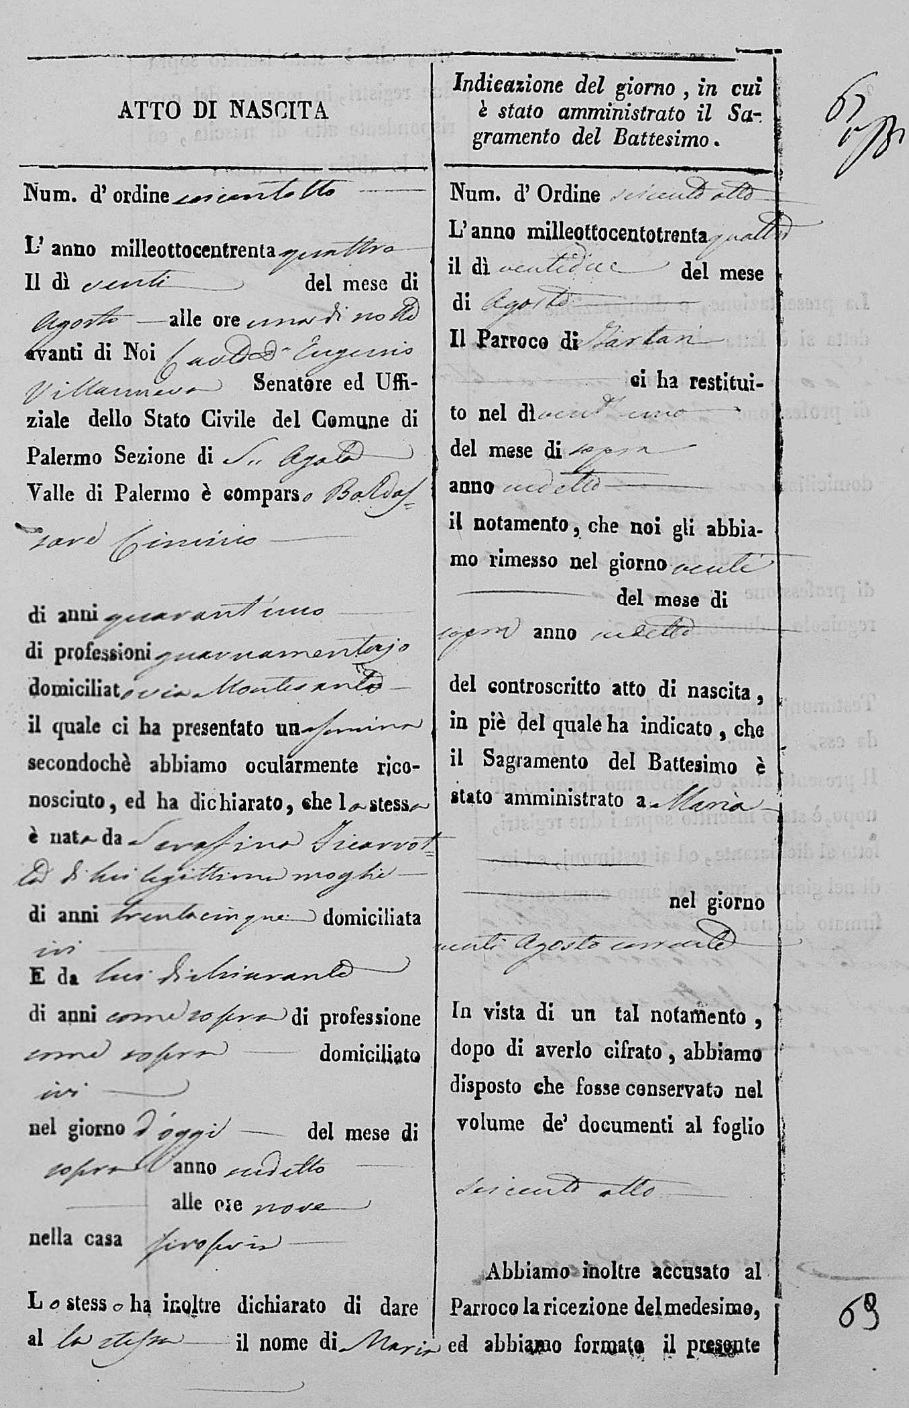 ATTO DI NASCITA
Num. d' ordine seicentotto
L' anno milleottocentrenta quattro
Il dì venti del mese di
Agosto alle ore una di notte
avanti di Noi Cav. D. D. Eugenio
Villanueva Senatore ed Uffi-
ziale dello Stato Civile del Comune di
Palermo Sezione di S. Agata
Valle di Palermo è comparso Baldas-
sare Ciminio
di anni quarant'uno
di professioni guarnamentajo
domiciliato via Montesanto
il quale ci ha presentato una femina
secondochè abbiamo oculármente rico-
nosciuto, ed ha dichiarato, che la stessa
è nata da Serafina Scarvot-
ta di lui legittima moglie
di anni trentacinque domiciliata
ivi
E da lui dichiarante
di anni come sopra di professione
come sopra domiciliato
ivi
nel giorno d'oggi del mese di
sopra anno sudetto
alle ore nove
nella casa propria
Lo stesso ha inoltre dichiarato di dare
al la stessa il nome di Maria
Indicazione del giorno, in cui
è stato amministrato il Sa-
gramento del Battesimo.
Num. d' Ordine seicento otto
L' anno milleottocentotrenta quattro
il dì ventidue del mese
di Agosto
Il Parroco di Tartari
ci ha restitui-
to nel dì vent'uno
del mese di sopra
anno sudetto
il notamento, che noi gli abbia-
mo rimesso nel giorno venti
del mese di
sopra anno sudetto
del controscritto atto di nascita,
in piè del quale ha indicato, che
il Sagramento del Battesimo è
stato amministrato a Maria
nel giorno
venti Agosto corrente
In vista di un tal notamento,
dopo di averlo cifrato, abbiamo
disposto che fosse conservato nel
volume de' documenti al foglio
seicento otto
Abbiamo inoltre accusato al
Parroco la ricezione del medesimo,
ed abbiamo formato il presente